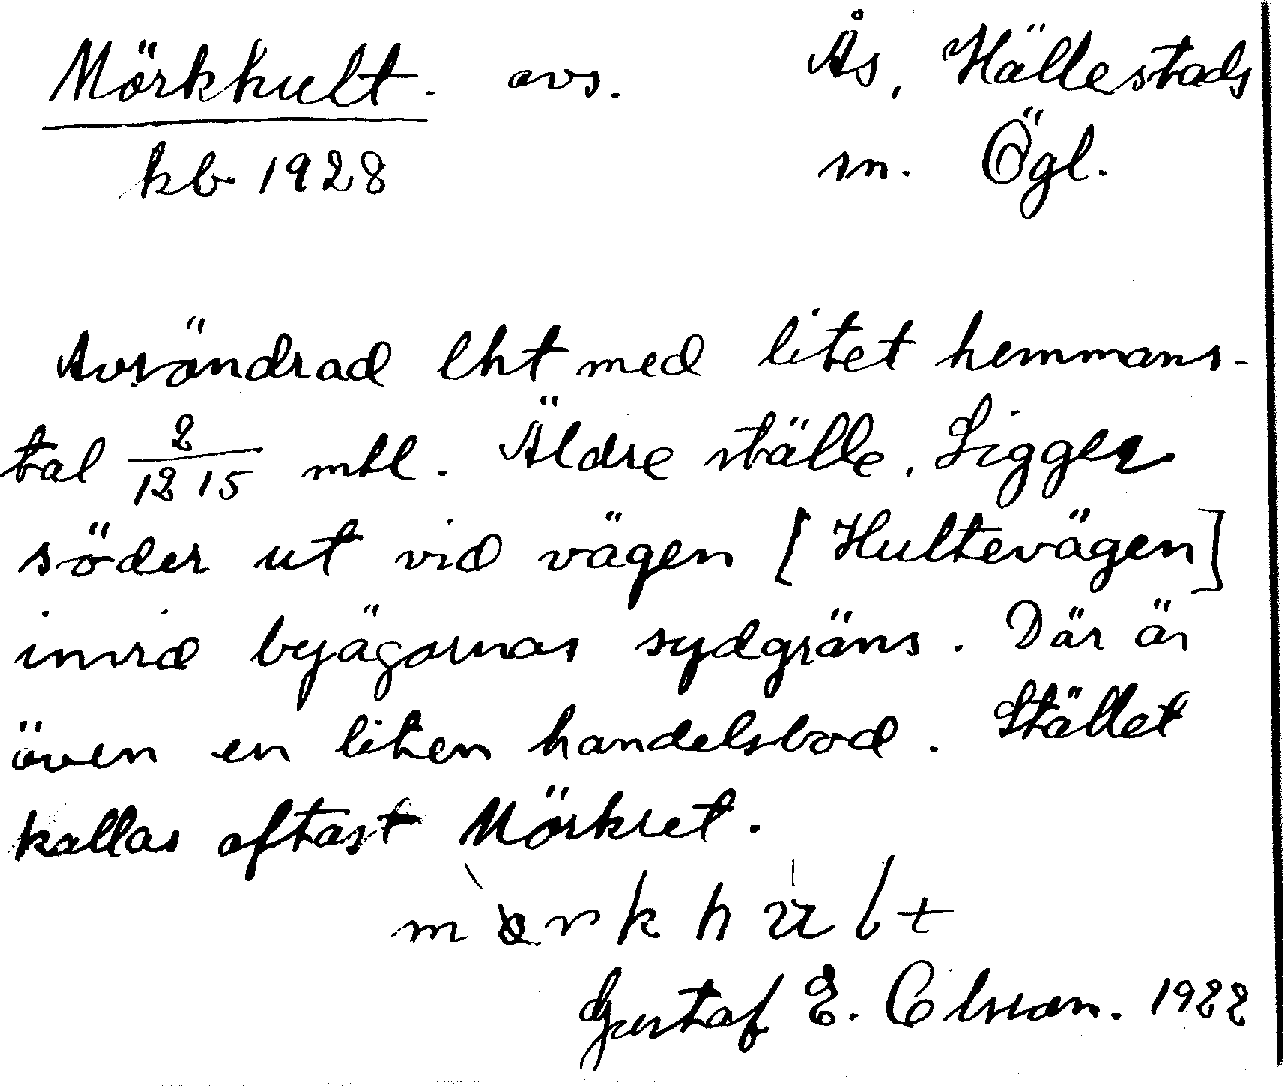 Mörkhult. avs. Ås, Hällestads
kb 1928 sn. Ögl.
Avsöndrad lht med litet hemmans-
tal 2/12 15 mtl. Äldre ställe. Ligger
söder ut vid vägen [Hultevägen]
invid byägornas sydgräns. Där är
även en liten handelsbod. Stället
kallas oftast Mörkret.
Gustaf E. Olsson. 1922